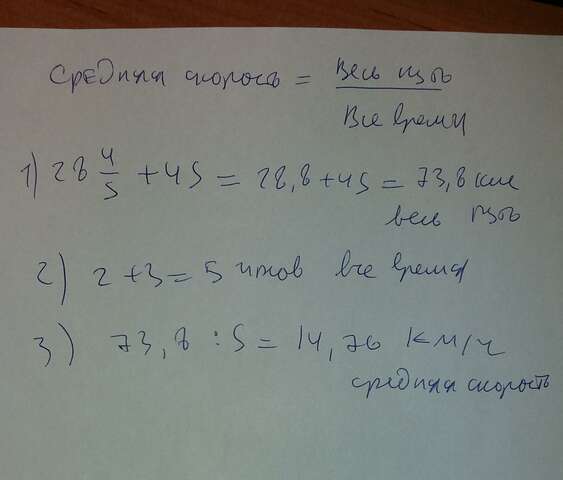 Средняя скорость = Весь путь
Все время
1) 28 4/5 + 45 = 28,8 + 45 = 73,8 км
весь путь
2) 2 + 3 = 5 часов все время
3) 73,8 : 5 = 14,76 км/ч
средняя скорость